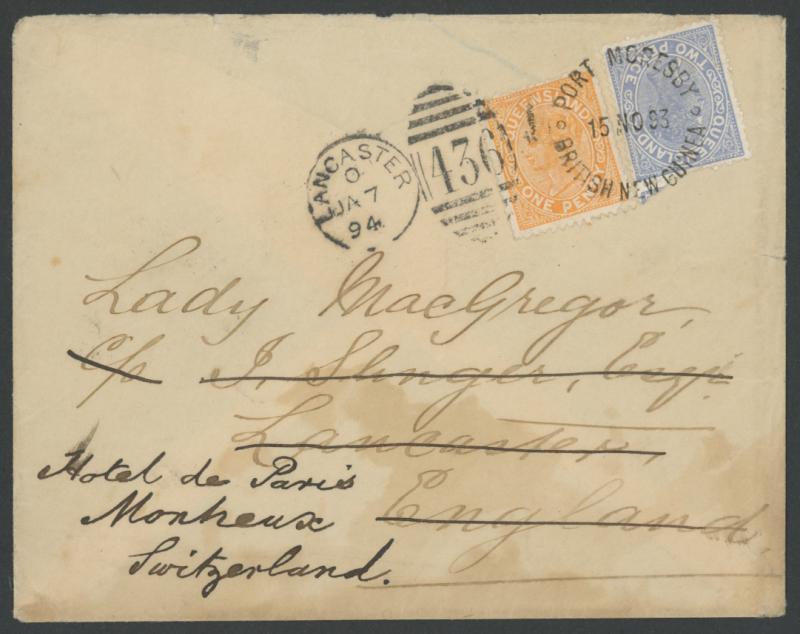 LANCASTER
O
JA 7
94
436
QUEENSLAND
ONE PENNY
PORT MORESBY
15 NO 93
BRITISH NEW GUINEA
QUEENSLAND
TWO PENCE
Lady MacGregor,
c/o J. Slinger, Esqr
Lancaster,
England.
Hotel de Paris
Montreux
Switzerland.